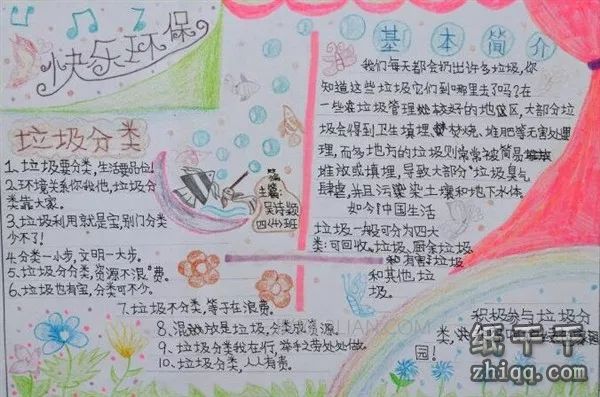 快乐环保
垃圾分类
1、垃圾要分类,生活要品位!
2、环境关系你我他,垃圾分
类靠大家。
3、垃圾利用就是宝,别门分类
少不了!
4、分类一小步,文明一大步。
5、垃圾分分类,资源不浪费。
6、垃圾也有宝,分类可不少。
7、垃圾不分类,等于在浪费。
8、混放是垃圾,分类成资源。
9、垃圾分类我在行,举手之劳处处做。
10、垃圾分类,人人有责。
主编:
吴诗颖
四(4)班
基本简介
我们每天都会扔出许多垃圾,你
知道这些垃圾它们到哪里去了吗?在
一些垃圾管理较好的地区,大部分垃
圾会得到卫生填埋、焚烧、堆肥等无害处理
理,而多地方的垃圾则常常被简易
堆放或填埋,导致大部分垃圾臭气
肆虐,并且污染土壤和地下水体。
如今中国生活
垃圾一般可分为四大
类:可回收。垃圾、厨余垃圾
和有害垃圾
和其他垃
圾。
积极参与垃圾分
类,
园!
LIAN.COM
纸千千
zhiqq.com